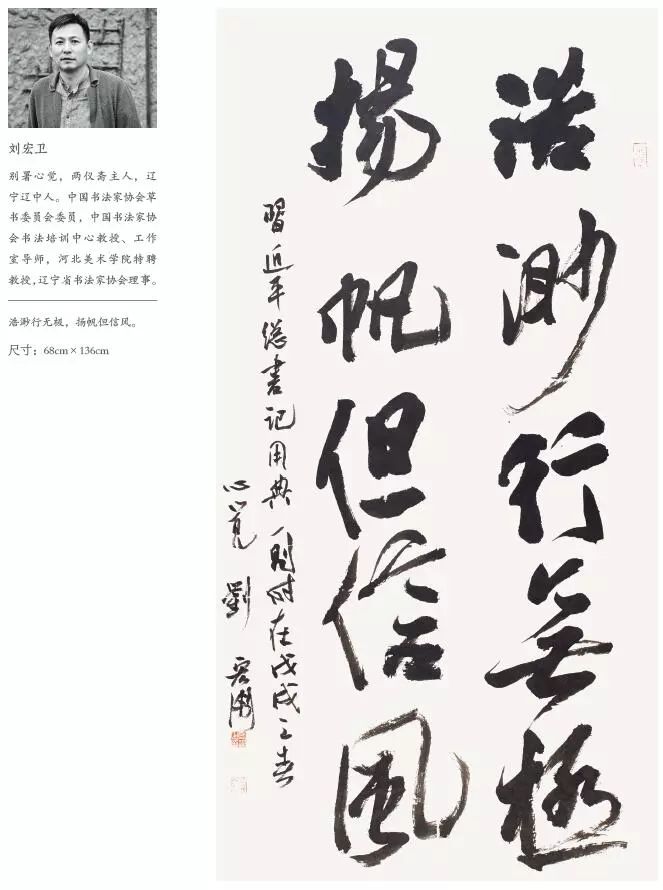 刘宏卫
别署心觉，两仪斋主人，辽
宁辽中人。中国书法家协会草
书委员会委员，中国书法家协
会书法培训中心教授、工作
室导师，河北美术学院特聘
教授，辽宁省书法家协会理事。
浩渺行无极，扬帆但信风。
尺寸：68cm×136cm
浩渺行無極
揚帆但信風
習近平總書記用典一則时在戊戌之春
心覺劉宏衛